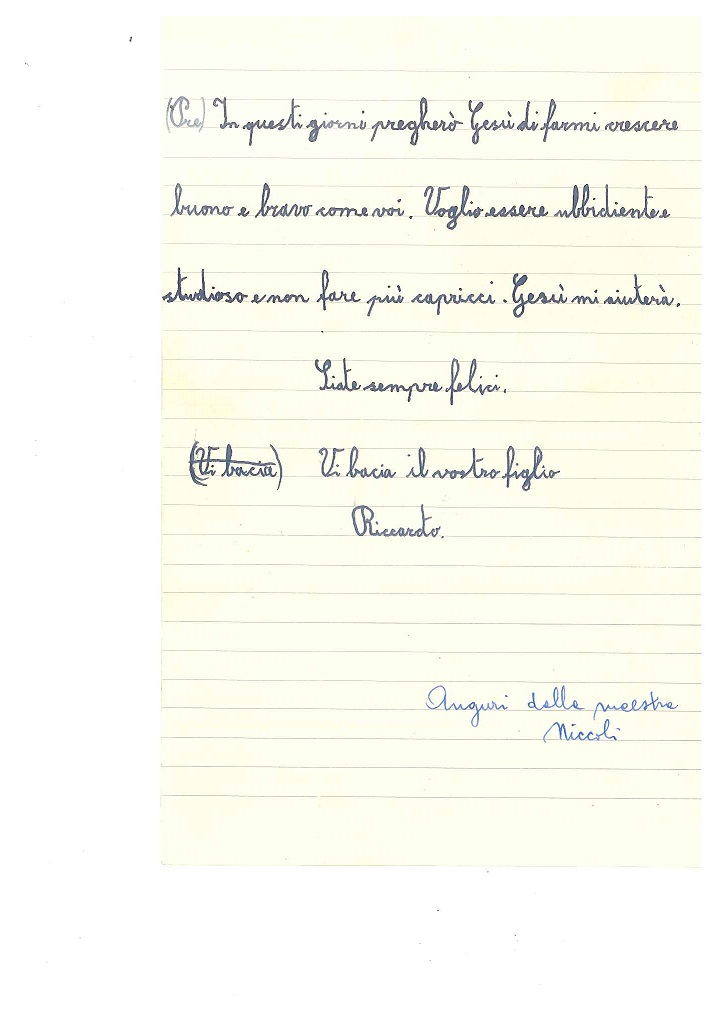 (Pre) In questi giorni pregherò Gesù di farmi crescere
buono e bravo come voi. Voglio essere ubbidiente e
studioso e non fare più capricci. Gesù mi aiuterà.
Siate sempre felici.
(Vi bacia) Vi bacia il vostro figlio
Riccardo.
Auguri dalla maestra
Niccoli